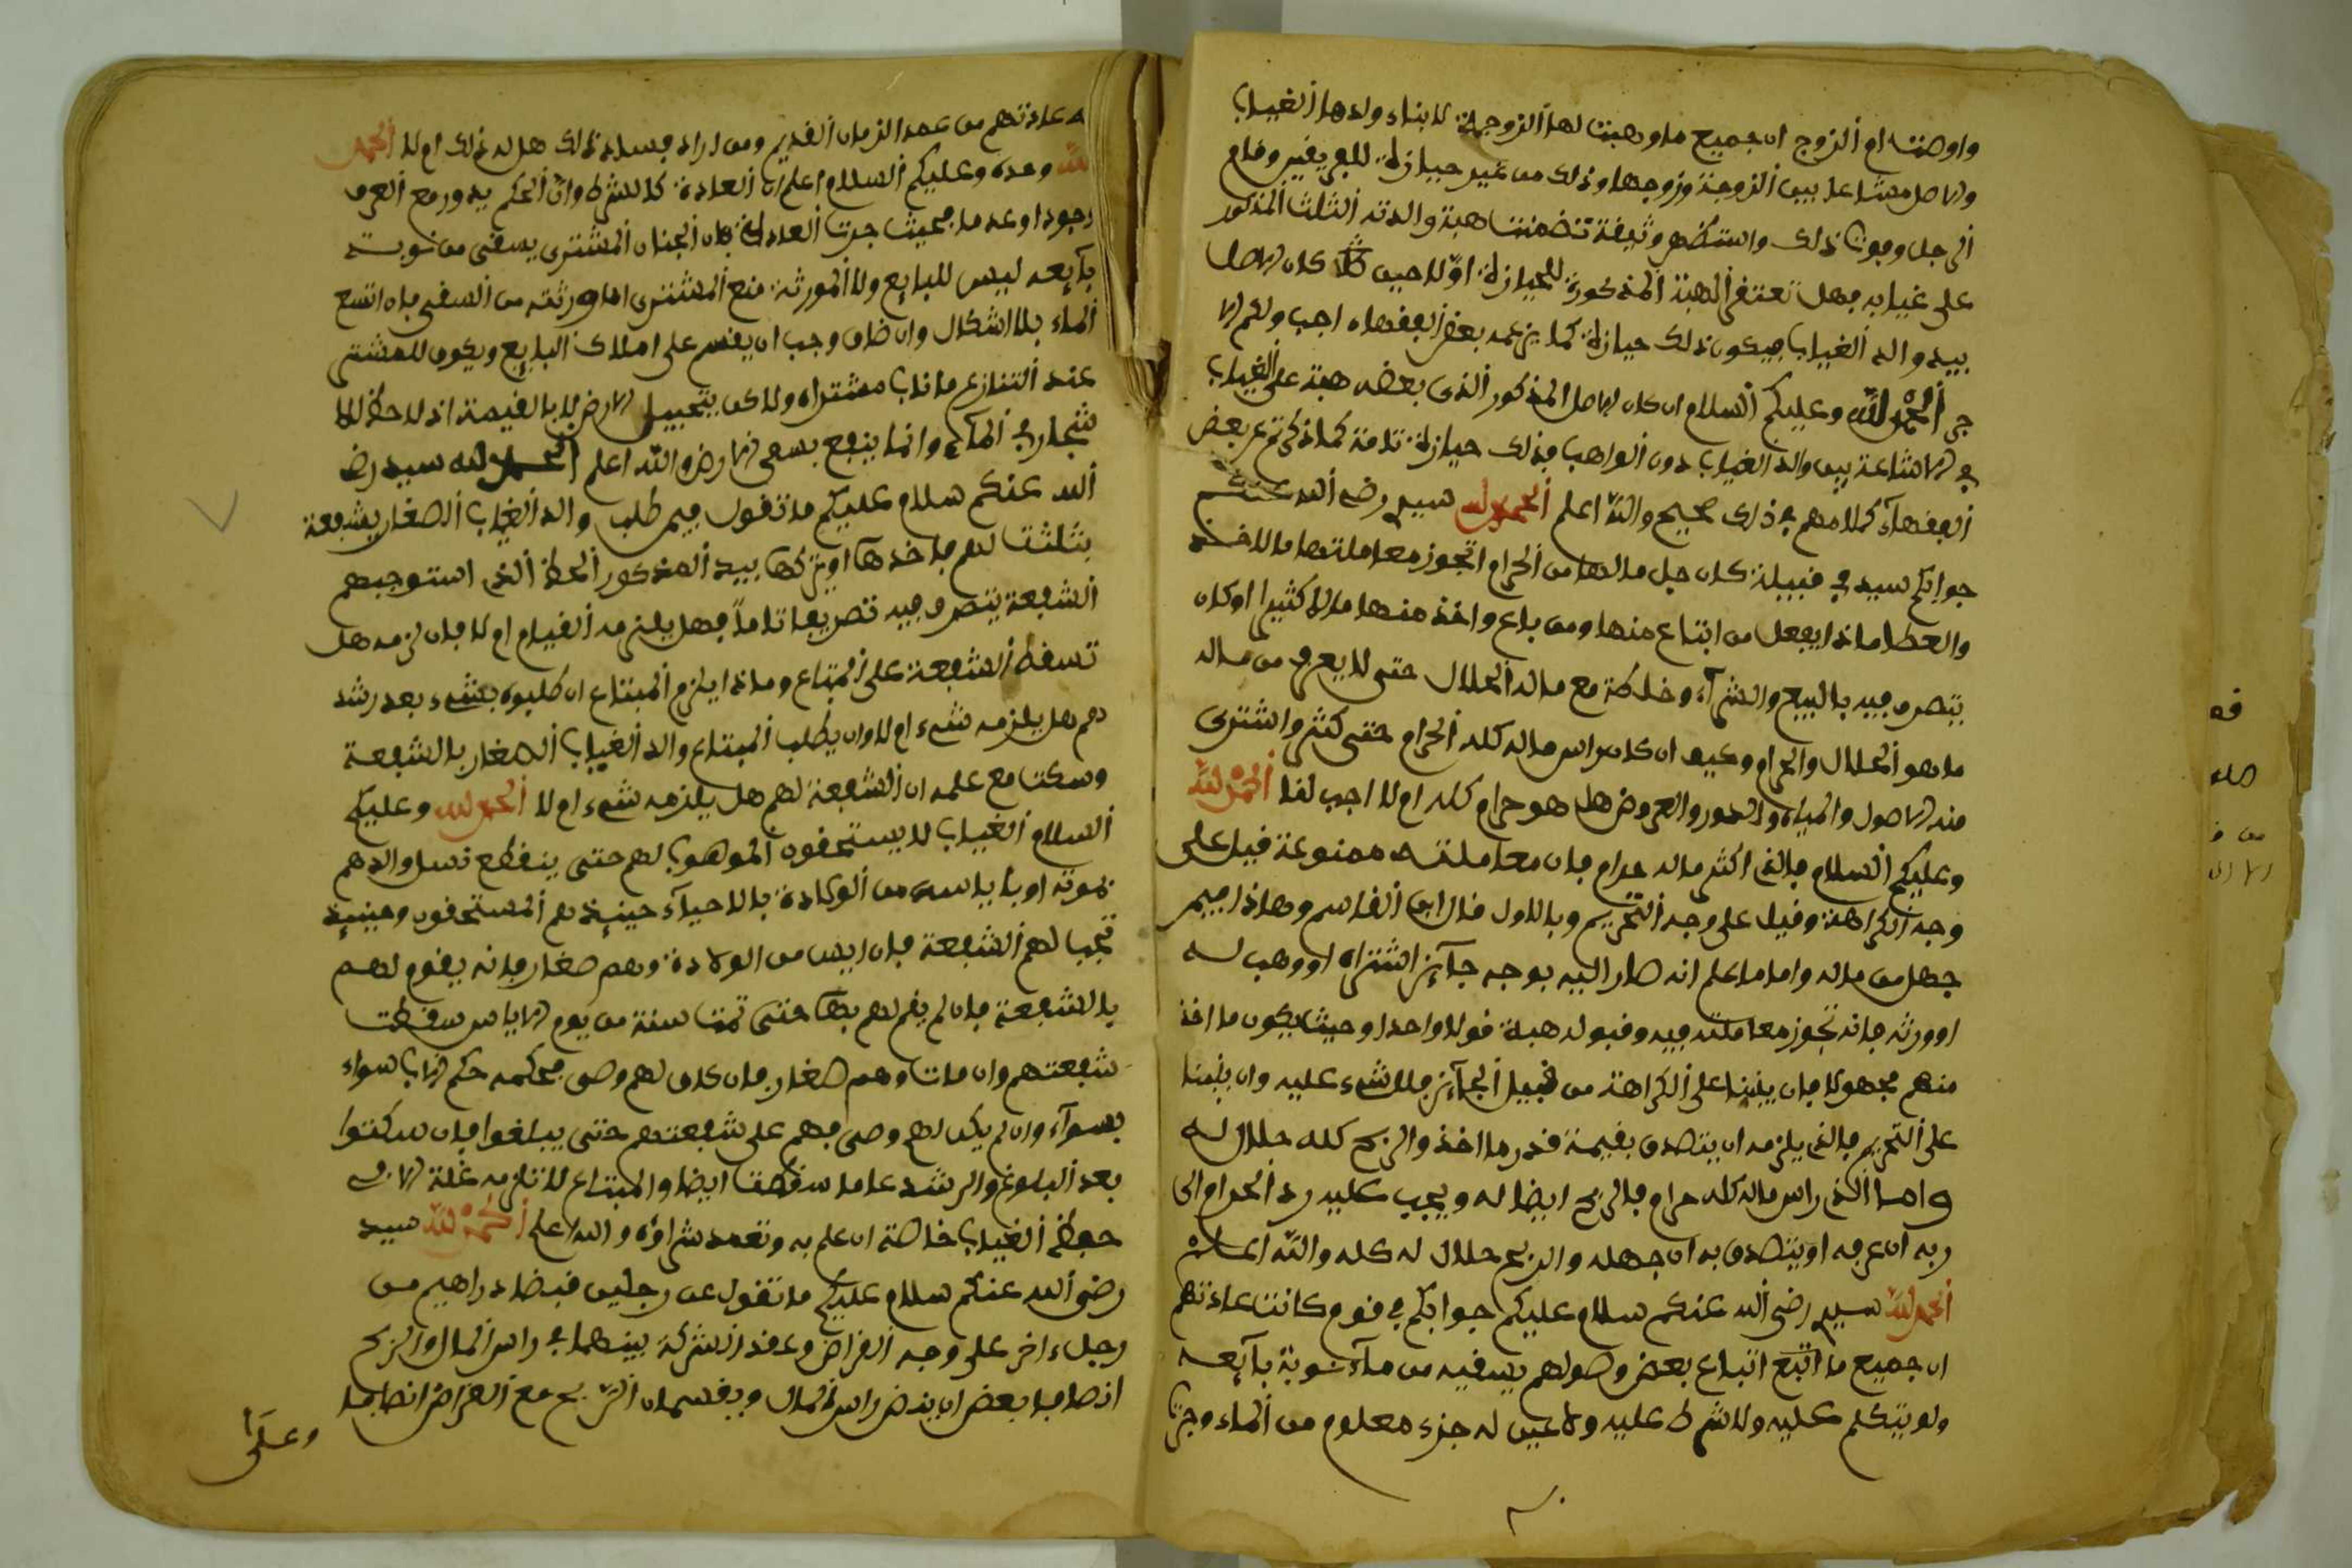 واوصت ام الزوج ان جميع ما وهبت لها الزوجة لابناء ولدها الغياب
والاصل مشاعا بين الزوجة وزوجها وذلك من غير حيازة للفريقين وقام
الرجل وفوت ذلك واستظهر وثيقة تضمنت هبة والدته الثلث المذكور
على غيابه فهل تفتقر الهبة المذكورة للحيازة اولا حيث كان الاصل
بيد والد الغياب فيكون ذلك حيازة كما زعمه بعض الفقهاء اجب ولكم الا
جر الحمد لله وعليكم السلام ان كان الاصل المذكور الذى بعضه هبة على الغياب
في الاشاعة بين والد الغياب دون الواهب فذلك حيازة تامة كما ذكرتم عن بعض
الفقهاء كلامهم في ذلك صحيح والله اعلم الحمد لله سيدى رضي الله عنكم
جوابكم سيدى في قبيلة كان جل مالها من الحرام اتجوز معاملتها ما للاخذ
والعطا ماذا يفعل من ابتاع منها ومن باع واخذ منها مالا كثيرا اوكان
يتصرف فيه بالبيع والشراء وخلطه مع ماله الحلال حتى لا يعرف من ماله
ما هو الحلال والحرام وكيف ان كان راس ماله كله الحرام حتى كثر واشترى
منه الاصول والمياه والدور والعروض هل هو حرام كله ام لا اجب لنا الحمد لله
وعليكم السلام فالذى اكثر ماله حرام فان معاملته ممنوعة فيل على
وجه الكراهة وفيل على وجه التحريم وبالاول قال ابن القاسم وهاذا فيمن
جهل من ماله واما ما علم انه صار اليه بوجه جائز اشتراه او وهب له
اوورثه فانه تجوز معاملته فيه وقبوله هبة قولا واحدا وحيث يكون ما اخذ
منهم مجهولا فان بنينا على الكراهة من قبيل الجائز فلا شيء عليه وان بنينا
على التحريم فالذى يلزمه ان يتصدق بقيمة قدر ما اخذ والربح كله حلال له
واما الذى راس ماله كله حرام فالربح ايضا له ويجب عليه رد الحرام الى
ربه ان عرفه او يتصدق به ان جهله والربح حلال له كله والله اعلم
الحمد لله سيدى رضي الله عنكم سلام عليكم جوابكم في قوم كانت عادتهم
ان جميع ما اتبع اتباع بعض وصولهم يسقيه من ماء نوبة بآئعه
ولم يتكلم عليه ولا شرط عليه ولا عين له جزء معلوم من الماء وجرت
به عادتهم من عهد الزمان القديم ومن اراد فساد ذلك هل له ذلك ام لا الحمد
لله وحده وعليكم السلام اعلم ان العادة كالشرط وان الحكم يدور مع العرف
وجودا وعدما فحيث جرت العادة بان الجنان المشترى يسقى من نوبة
بآئعه ليس للبايع ولا لورثته منع المشترى او ورثته من السقى فان اتسع
الماء بلا اشكال وان ضاق وجب ان يقسم على املاك البايع ويكون للمشترى
عند التنازع ما ناب مشتراه ولاكن يتحبيل الارض لا بالقيمة اذ لا حظ للا
شجار في الماء وانما ينتفع بسقى الارض والله اعلم الحمد لله سيدى رضي
الله عنكم سلام عليكم ما تقول فيمن طلب والد الغياب الصغار بشفعة
بثلثت لهم فاخذها او تركها بيد المذكور الحظ الذى استوجبهم
الشفعة يتصرف فيه تصريفا تاما فهل يلزمه القيام ام لا فان لزمه هل
تسقط الشفعة على المبتاع وماذا يلزم المبتاع ان طلبوه بشىء بعد رشد
هم هل يلزمه شىء ام لا وان يطلب المبتاع والد الغياب الصغار بالشفعة
وسكت مع علمه ان الشفعة لهم هل يلزمه شىء ام لا الحمد لله وعليكم
السلام الغياب لا يستحقون الموهوب لهم حتى ينقطع نسل والدهم
بموته او باياسه من الولادة بالاحياء حينئذ هم المستحقون وحينئذ
تجب لهم الشفعة فان ايس من الولادة وهم صغار فانه يقوم لهم
بالشفعة فان لم يقم لهم بها حتى تمت سنة من يوم الاياس سقطت
شفعتهم وان مات وهم صغار فان كان لهم وصى فحكمه حكم الاب سواء
بسواء وان لم يكن لهم وصى فهم على شفعتهم حتى يبلغوا فان سكتوا
بعد البلوغ والرشد عاما سقطت ايضا والمبتاع لا تلزمه غلة الا في
حظ الغياب خاصة ان علم به وتعمد شراؤه والله اعلم الحمد لله سيدى
رضي الله عنكم سلام عليكم ما تقول عن رجلين قبضا دراهيم من
رجل ءاخر على وجه القراض وعقد الشركة بينهما في راس المال والربح
انصافا بعض ان ينض راس المال ويقسمان الربح مع القراض انصافا
وعلى